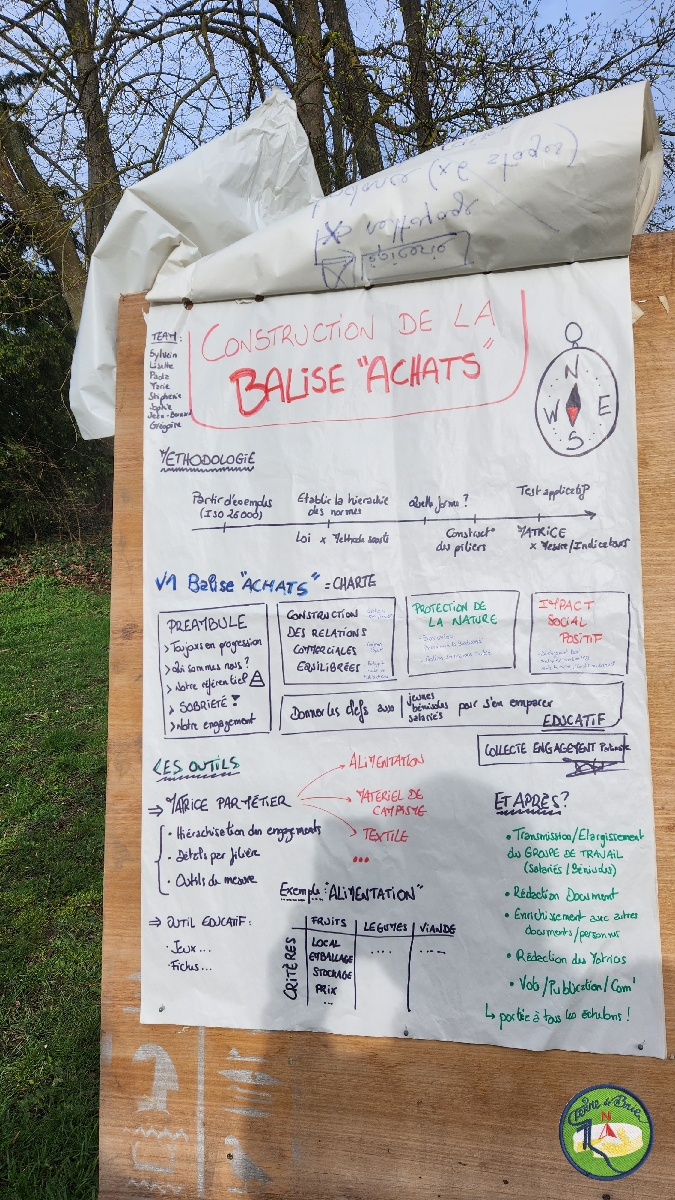 CONSTRUCTION DE LA
BALISE "ACHATS"
TEAM:
Sylvain
Lisette
Stéphanie
Sophie
Jean-Bernard
Grégoire
N
W E
S
METHODOLOGIE
Partir d'exemples
(ISO 26000)
Etablir la hiérarchie
des normes
Quelle forme ?
Test applicatif
Loi x Methode scoute
Construct°
des piliers
MATRICE
x Mesure/Indicateurs
V1 Balise "ACHATS" = CHARTE
PREAMBULE
> Toujours en progression
> Qui sommes nous ?
> Notre référentiel
> SOBRIÉTÉ !
> Notre engagement
CONSTRUCTION
DES RELATIONS
COMMERCIALES
EQUILIBRÉES
PROTECTION DE
LA NATURE
IMPACT
SOCIAL
POSITIF
Donner les clefs aux jeunes
bénévoles
salariés
pour s'en emparer
EDUCATIF
COLLECTE ENGAGEMENT
LES OUTILS
⇒ MATRICE PAR MÉTIER
ALIMENTATION
MATÉRIEL DE
CAMPISME
TEXTILE
...
• Hiérarchisation des engagements
• Détails par filière
• Outils de mesure
Exemple: "ALIMENTATION"
FRUITS LEGUMES VIANDE
CRITÈRES
LOCAL .... ....
EMBALLAGE
STOCKAGE
PRIX
...
⇒ OUTIL EDUCATIF:
• Jeux...
• Fiches...
ET APRÈS?
• Transmission/Elargissement
du GROUPE DE TRAVAIL
(Salariés/Bénévoles)
• Rédaction Document
• Enrichissement avec autres
documents/personnes
• Rédaction des Matrices
• Vote/Publication/Com'
↳ portée à tous les échelons !
N